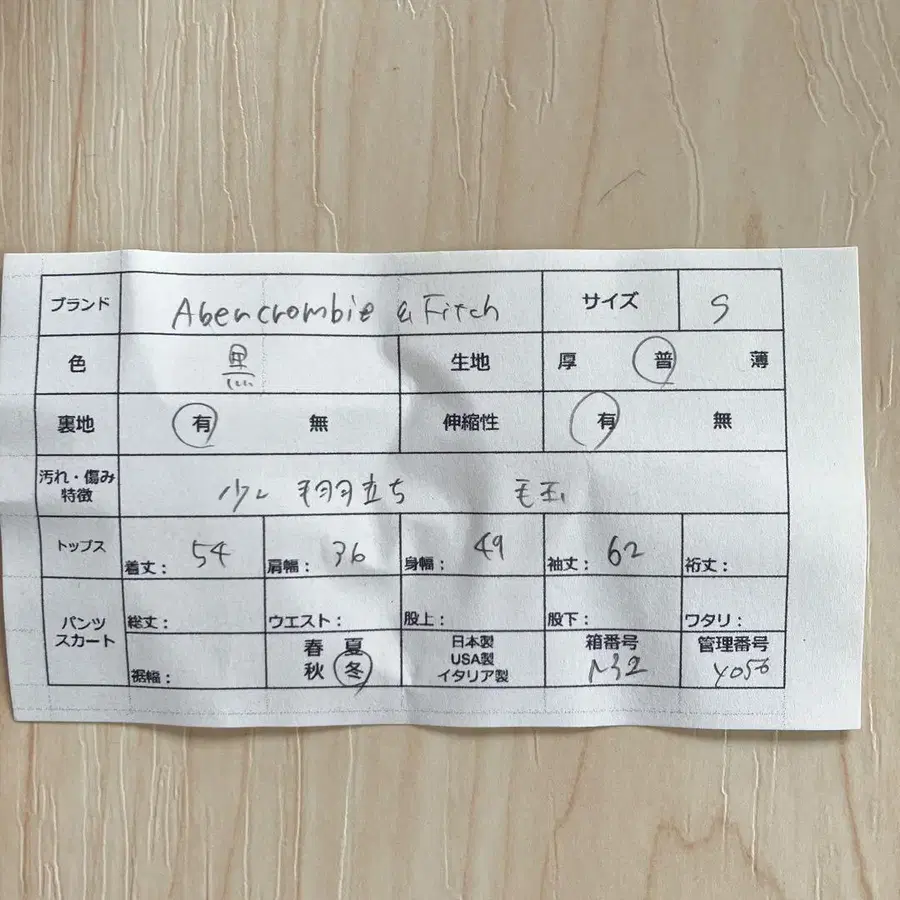 ブランド Abencrombie & Fitch サイズ S
色 黒 生地 厚 普 薄
裏地 有 無 伸縮性 有 無
汚れ・傷み
特徴 少し毛羽立ち 毛玉
トップス 着丈: 54 肩幅: 36 身幅: 49 袖丈: 62 裄丈:
パンツ
スカート 総丈: ウエスト: 股上: 股下: ワタリ:
裾幅:
春 夏
秋 冬
日本製
USA製
イタリア製
箱番号
N32
管理番号
Y056